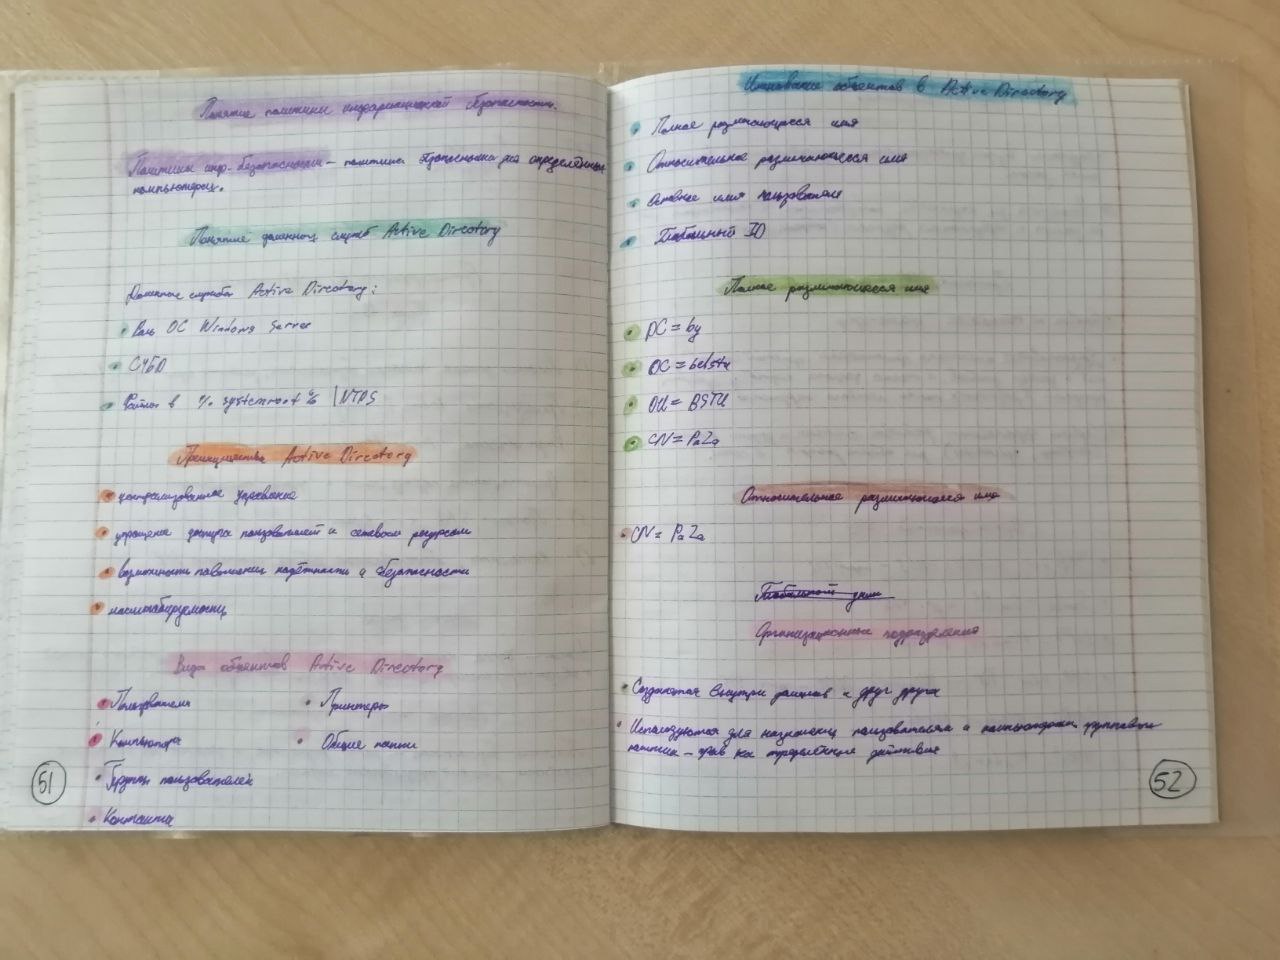 Понятие политики информационной безопасности.
Политики инф. безопасности – политика безопасности на определённых
компьютерах.
Понятие доменных служб Active Directory
Доменные службы Active Directory:
• Роль ОС Windows Server
• СУБД
• Файлы в % systemroot % \ NTDS
Преимущества Active Directory
• централизованное управление
• упрощение доступа пользователей к сетевым ресурсам
• возможность повышения надёжности и безопасности
• масштабируемость
Виды объектов Active Directory
• Пользователи
• Компьютеры
• Группы пользователей
• Контакты
• Принтеры
• Общие папки
51
Именование объектов в Active Directory
• Полное различающееся имя
• Относительное различающееся имя
• Основное имя пользователя
• Глобальный ID
Полное различающееся имя
• DC = by
• DC = belstu
• OU = BSTU
• CN = PaZa
Относительное различающееся имя
• CN = PaZa
Организационные подразделения
• Создаются внутри доменов и друг друга
• Используются для назначения пользователям и компьютерам групповых
политик – прав на определённые действия
52